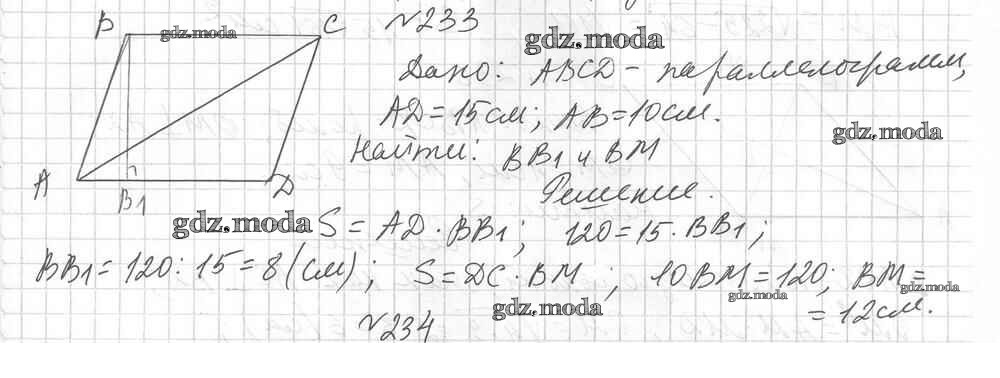 №233
B C
gdz.moda
gdz.moda
Дано: ABCD - параллелограмм,
AD = 15 см; AB = 10 см.
gdz.moda
Найти: BB1 и BM
A B1 D
Решение.
gdz.moda
S = AD · BB1; 120 = 15 · BB1;
BB1 = 120 : 15 = 8 (см); S = DC · BM; 10BM = 120; BM =
gdz.moda
gdz.moda
gdz.moda
= 12 см.
№234